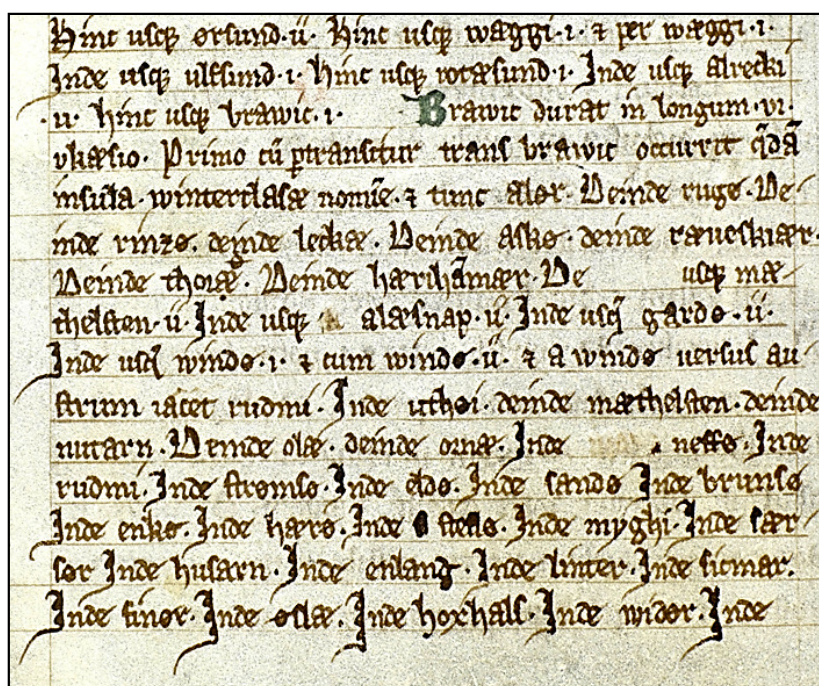 hinc usqꝫ ørsund·ii· hinc usqꝫ wæggi·i· ⁊ per wæggi·i·
Inde usqꝫ ulfsund·i· hinc usqꝫ rotæsund·i· Inde usqꝫ alrecki
·ii· hinc usqꝫ brawic·i· Brawic durat in longum·vi·
ukæsio· Primo cū ꝑtransitur trans brawic occurrit q̄dā
insula·winterclasæ nomīe·⁊ tunc alør·Deinde rugø·De-
inde rinzø·deinde leckæ·Deinde askø·deinde ræueskiær·
Deinde thoræ·Deinde hærihāmær·De usqꝫ mæ-
thelsten·ii·Inde usqꝫ alæsnap·ii·Inde usq̄ gardø·ii·
Inde usq̄ windø·i·⁊ cum windø·ii·⁊ a windø uersus au-
strum iacet rudmi·Inde uthøi·deinde mæthelsten·deinde
nutarn·Deinde olæ·deinde ornæ·Inde neffø·Inde
rudmi·Inde strømsø·Inde eldø·Inde sandø Inde brunsø
Inde enkø·Inde hærø·Inde steflø·Inde myghi·Inde sær-
sør Inde husarn·Inde enlang·Inde linter·Inde sicmar·
Inde finør·Inde øslæ·Inde hoxhals·Inde widør·Inde